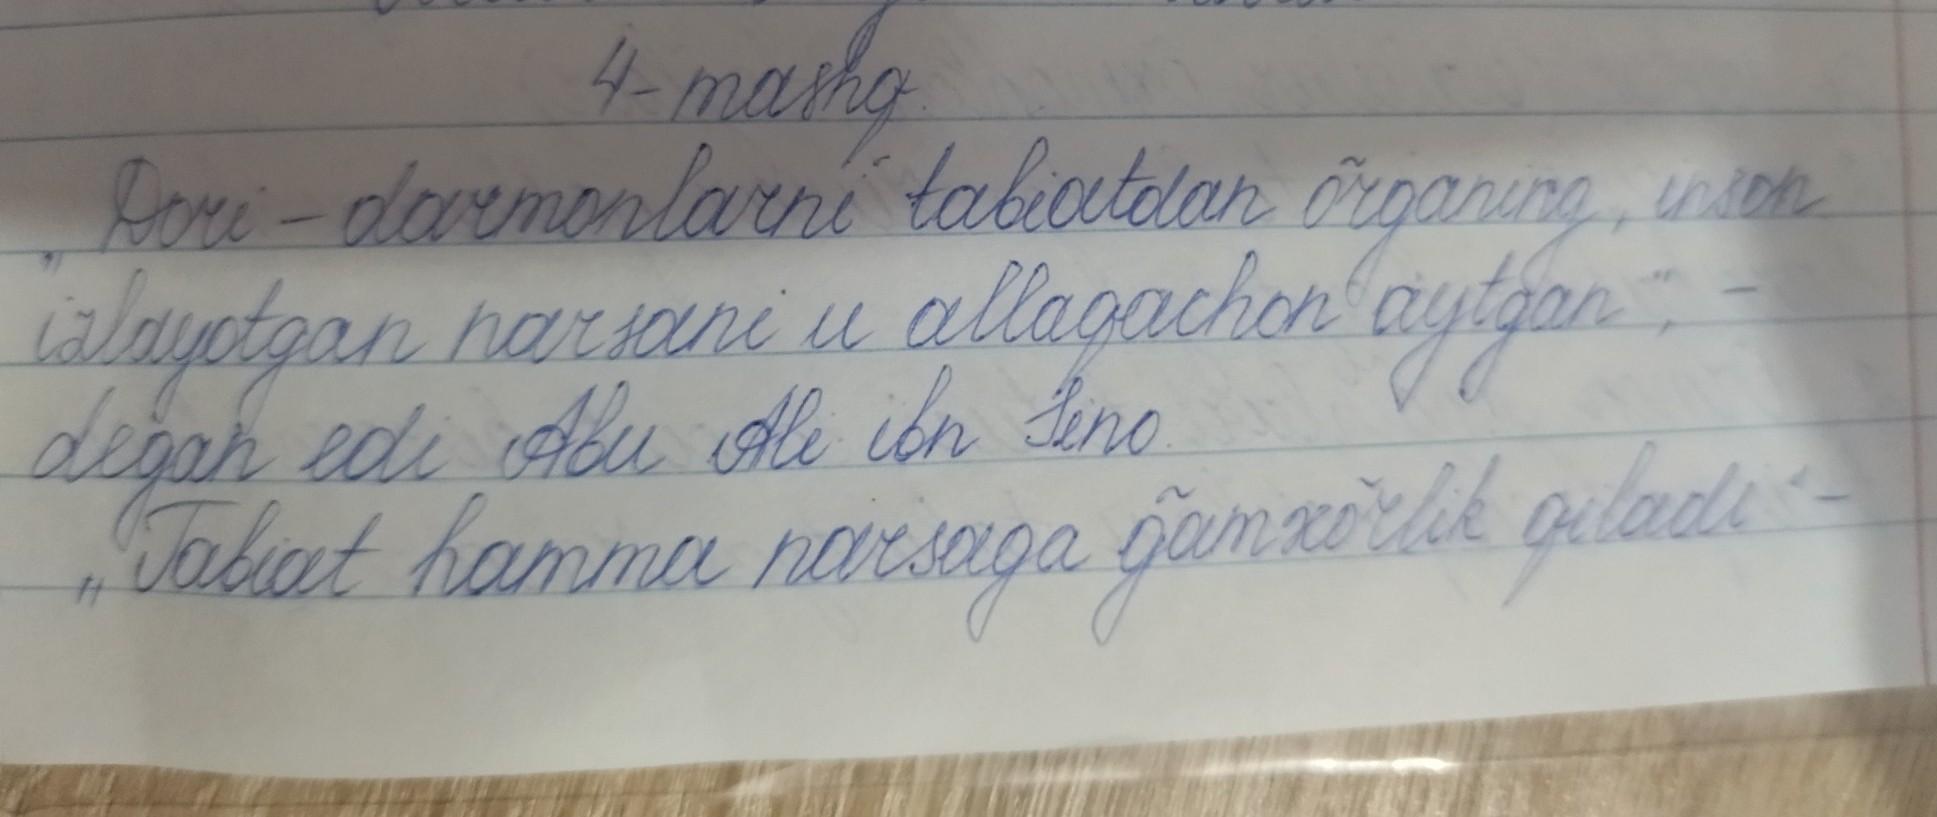 4-mashq.
„Dori-darmonlarni tabiatdan õrganing, inson
izlayotgan narsani u allaqachon aytgan“, -
degan edi Abu Ali ibn Sino.
„Tabiat hamma narsaga g̃amxõrlik qiladi“ -